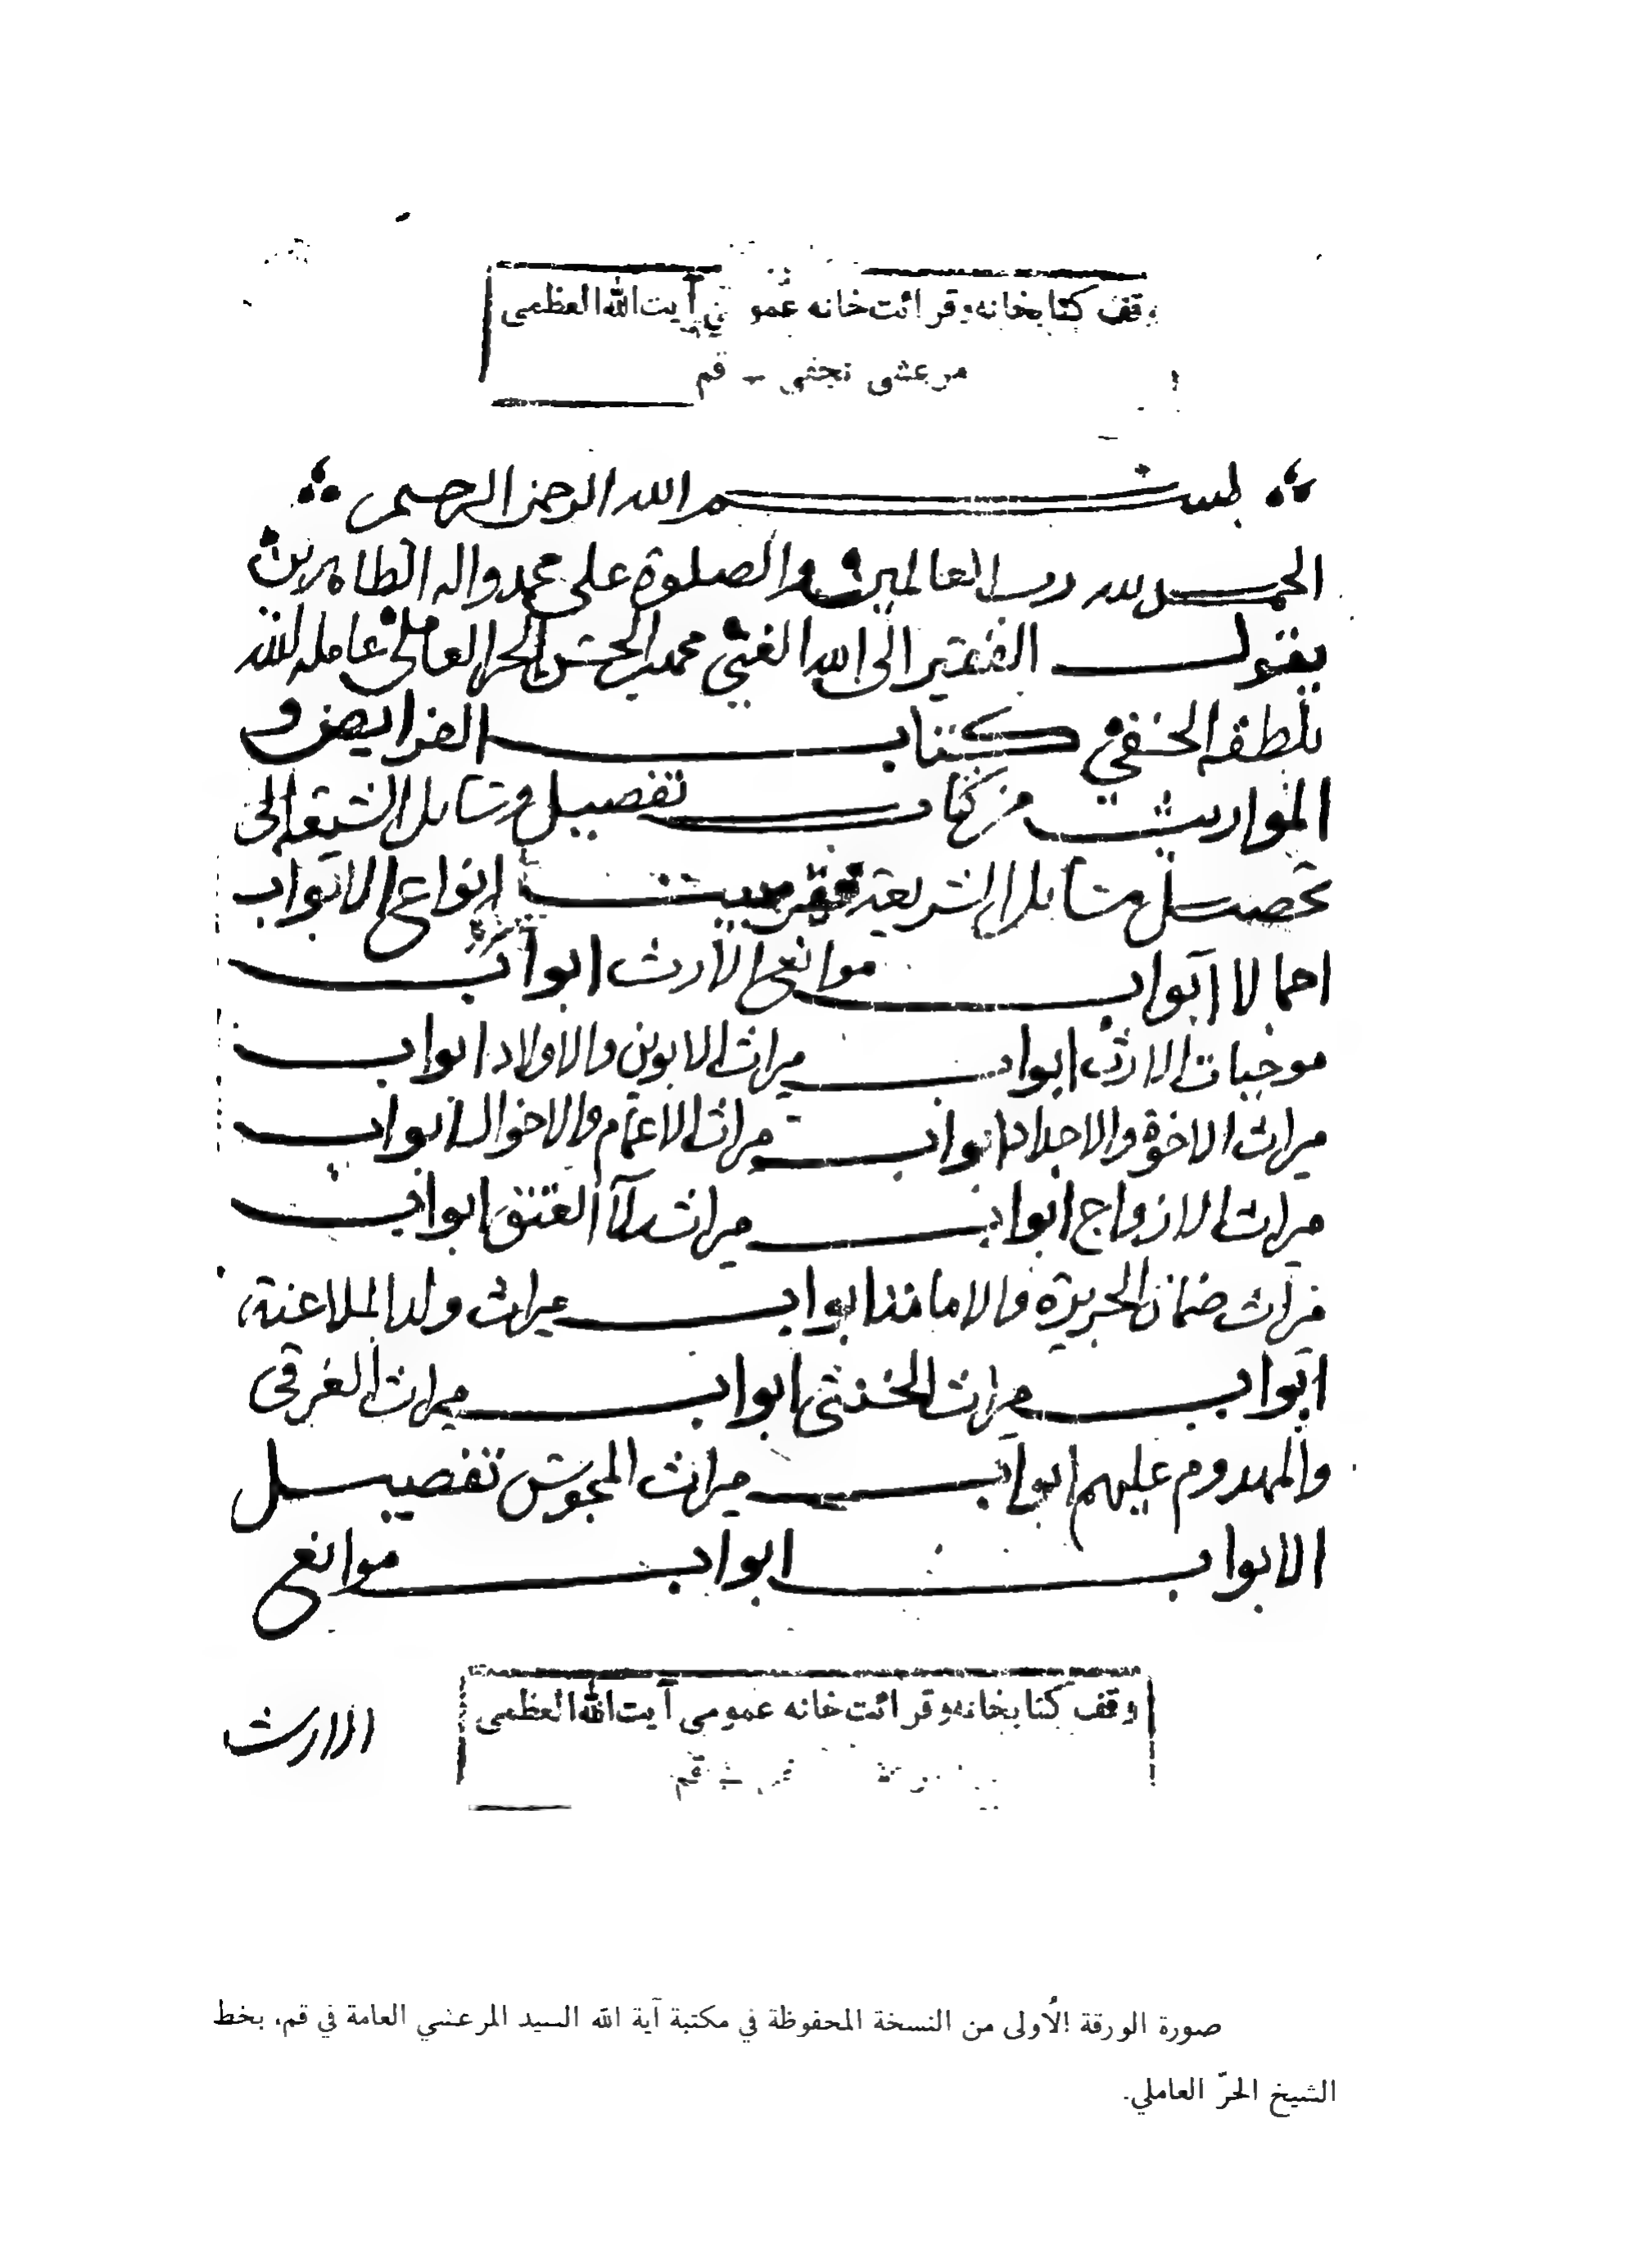 وقف كتابخانه وقرائت خانه عمومي آيت الله العظمى
مرعشى نجفى - قم
بسم الله الرحمن الرحيم
الحمد لله رب العالمين والصلوة على محمد واله الطاهرين
يقول الفقير الى الله الغني محمد بن الحسن الحر العاملي عامله الله
بلطفه الخفي كتاب الفرايض و
المواريث من كتاب تفصيل وسايل الشيعة الى
تحصيل مسايل الشريعة انواع الابواب
اجمالا ابواب موانع الارث ابواب
موجبات الارث ابواب ميراث الابوين والاولاد ابواب
ميراث الاخوة والاجداد ابواب ميراث الاعمام والاخوال ابواب
ميراث الازواج ابواب ميراث ولآء العتق ابواب
ميراث ضمان الجريرة والامامة ابواب ميراث ولد الملاعنة
ابواب ميراث الخنثى ابواب ميراث الغرقى
والمهدوم عليهم ابواب ميراث المجوس تفصيل
الابواب ابواب موانع
الارث
وقف كتابخانه وقرائت خانه عمومى آيت الله العظمى
قم
صورة الورقة الأولى من النسخة المحفوظة في مكتبة آية الله السيد المرعشي العامة في قم، بخط
الشيخ الحرّ العاملي.